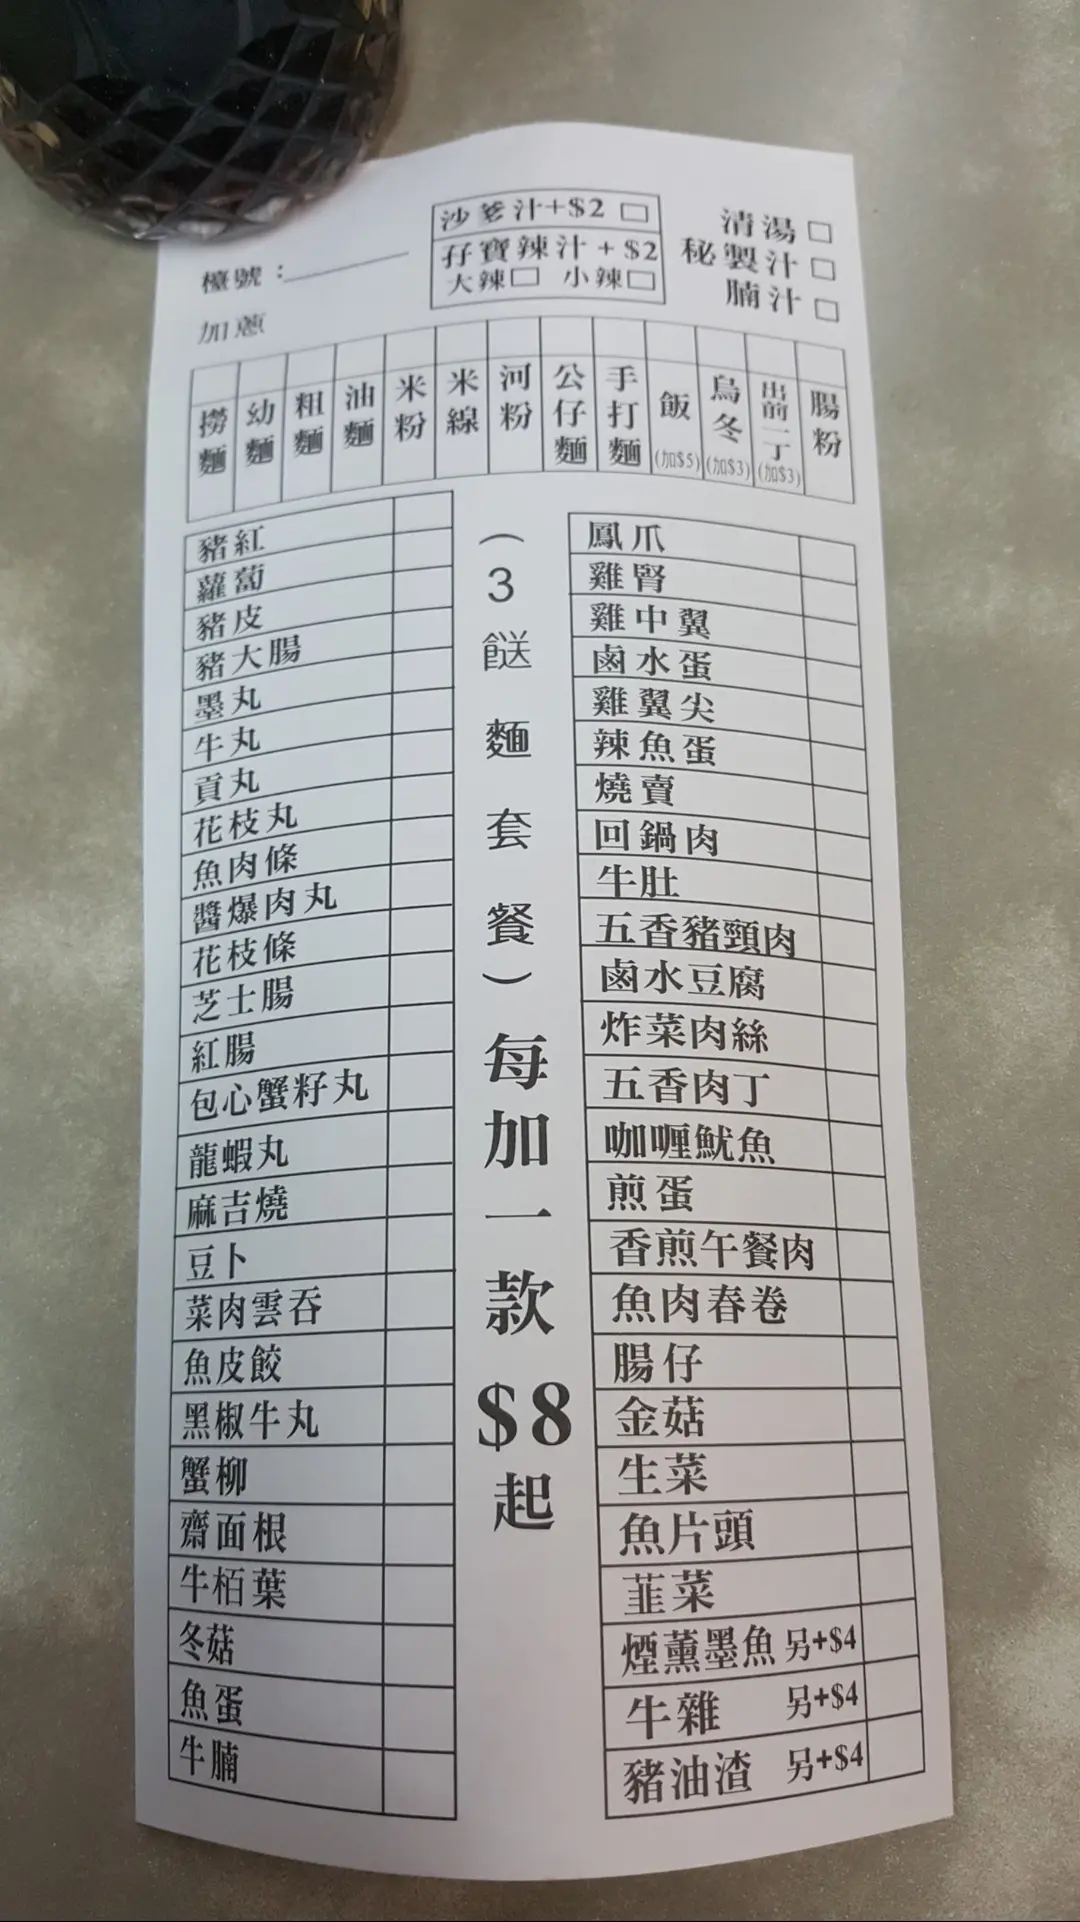 檯號：
加蔥
沙爹汁+$2 □
孖寶辣汁 + $2
大辣□ 小辣□
清湯 □
秘製汁 □
腩汁 □
撈麵
幼麵
粗麵
油麵
米粉
米線
河粉
公仔麵
手打麵
飯(加$5)
烏冬(加$3)
出前一丁(加$3)
腸粉
豬紅
蘿蔔
豬皮
豬大腸
墨丸
牛丸
貢丸
花枝丸
魚肉條
醬爆肉丸
花枝條
芝士腸
紅腸
包心蟹籽丸
龍蝦丸
麻吉燒
豆卜
菜肉雲吞
魚皮餃
黑椒牛丸
蟹柳
齋面根
牛栢葉
冬菇
魚蛋
牛腩
（3餸麵套餐）每加一款$8起
鳳爪
雞腎
雞中翼
鹵水蛋
雞翼尖
辣魚蛋
燒賣
回鍋肉
牛肚
五香豬頸肉
鹵水豆腐
炸菜肉絲
五香肉丁
咖喱魷魚
煎蛋
香煎午餐肉
魚肉春卷
腸仔
金菇
生菜
魚片頭
韮菜
煙薰墨魚 另+$4
牛雜 另+$4
豬油渣 另+$4